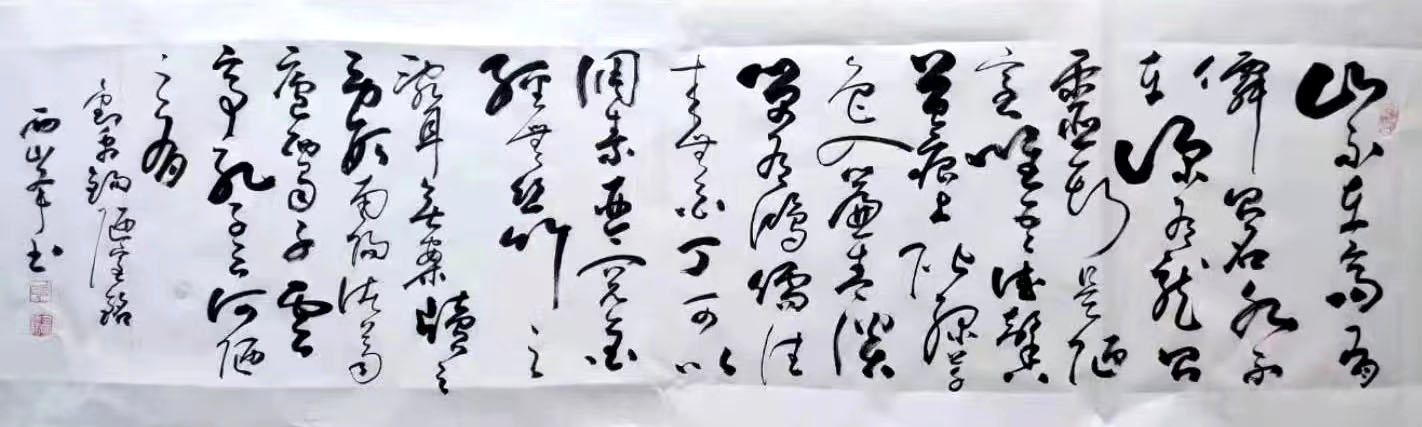 山不在高有
僊則名水不
在深有龍則
靈斯是陋
室唯吾德馨
苔痕上階綠草
色入簾青談
笑有鴻儒往
來無白丁可以
調素琴閱金
經無絲竹之
亂耳無案牘之
勞形南陽諸葛
廬西蜀子雲
亭孔子云何陋
之有
劉禹錫陋室銘
山峯书